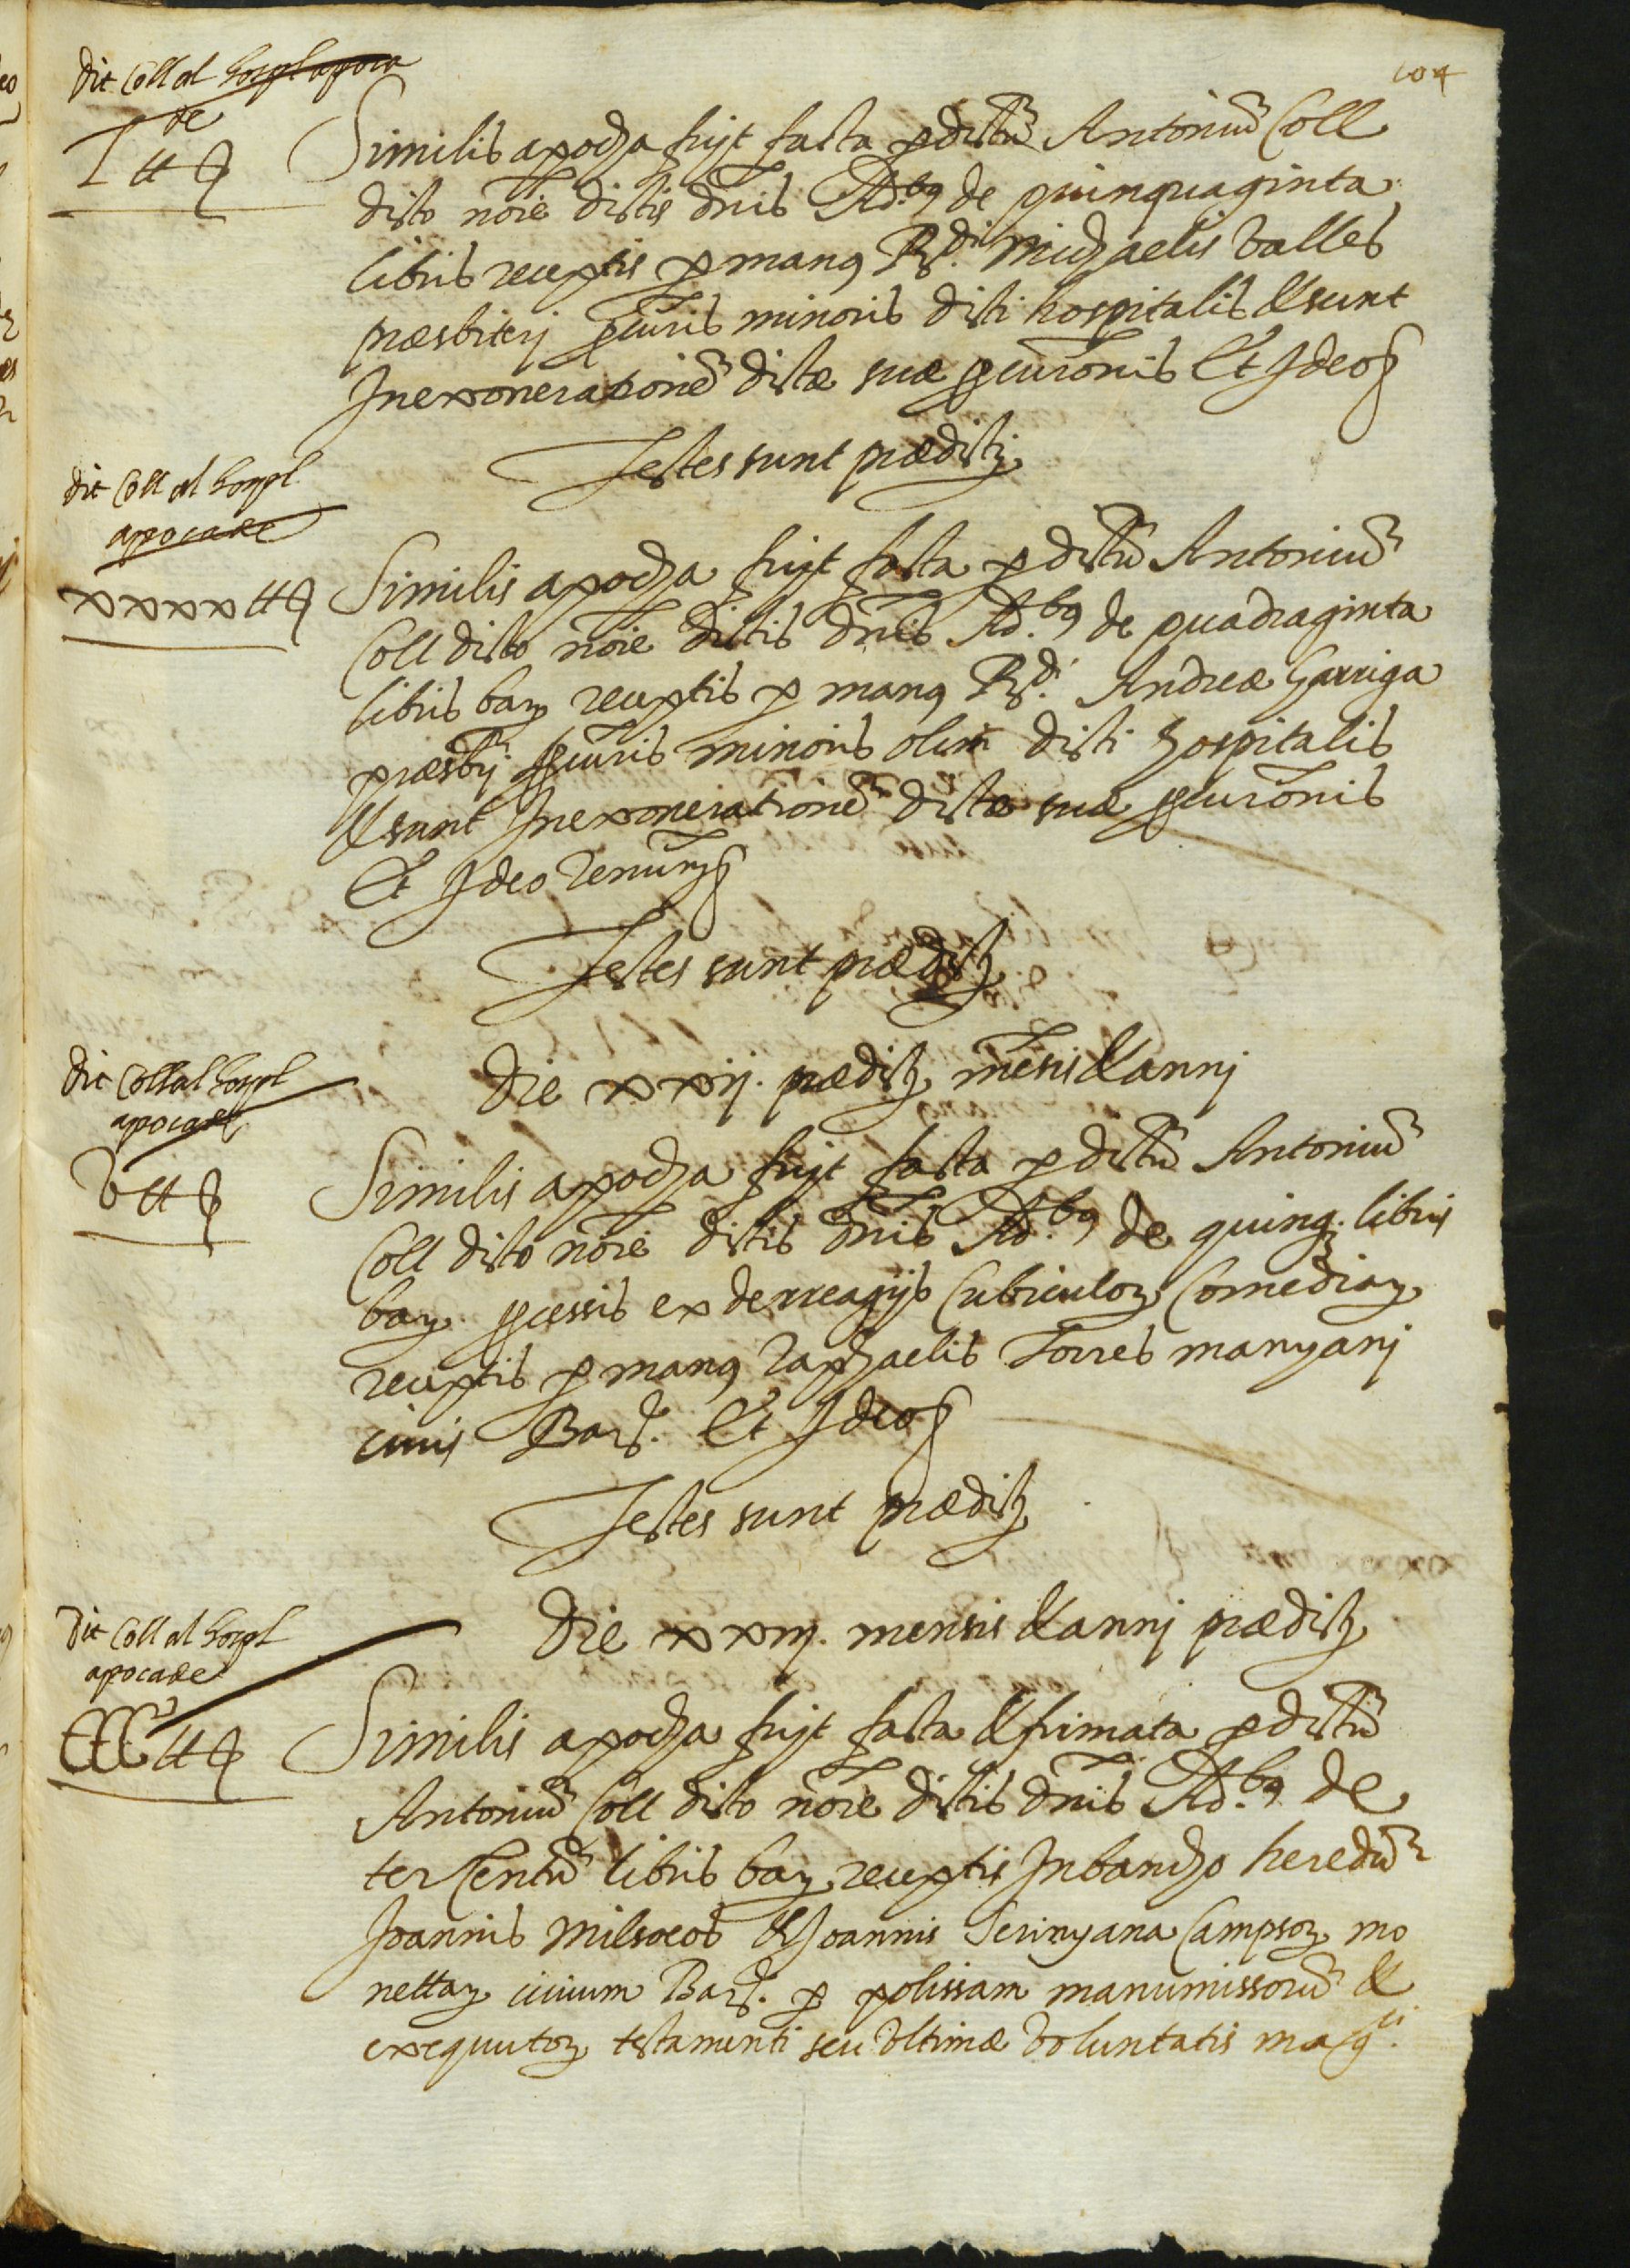 104
dit Coll al hospl apoca
de
L ££ s
Similis apocha fuyt facta p dictũ Antoniũ Coll
dicto noĩe dictis dnĩs Adbus de quinquaginta
libris receptis p manus Rdi Michaelis Valles
præsbiteri pcuris minoris dicti hospitalis & sunt
In exonerationẽ dictæ suæ pcurõnis Et Ideo s
Testes sunt prædicti
dit Coll al hospl
apoca de
xxxx ££ s
Similis apocha fuyt facta p dictũ Antoniũ
Coll dicto noĩe dictis dnĩs Adbus de quadraginta
libris barz receptis p manus Rdi Andreæ Garriga
præsbrj pcuris minoris olim dicti hospitalis
& sunt In exonerationẽ dictæ suæ pcurõnis
Et Ideo renunz s
Testes sunt prædicti
dit Coll al hospl
apoca de
V ££ s
Die xxij. prædicti mẽsis & annj
Similis apocha fuyt facta p dictũ Antoniũ
Coll dicto noĩe dictis dnĩs Adbus de quinqz libris
barz pcessis ex derreragijs Cubiculoz Comediaz
receptis p manus Raphaelis Torres manyanj
civis Barz. Et Ideo s
Testes sunt prædicti
dit Coll al hospl
apoca de
CCC ££ s
Die xxiij. mensis & annj prædicti
Similis apocha fuyt facta & firmata p dictũ
Antoniũ Coll dicto noĩe dictis dnĩs Adbus de
tercentũ libris barz receptis In bancho heredũ
Joannis Milsocos & Joannis Serinyana Campsoz mo
nettaz civium Barz. p polissam manumissorũ &
exequutoz testamenti seu Vltimæ Voluntatis magci